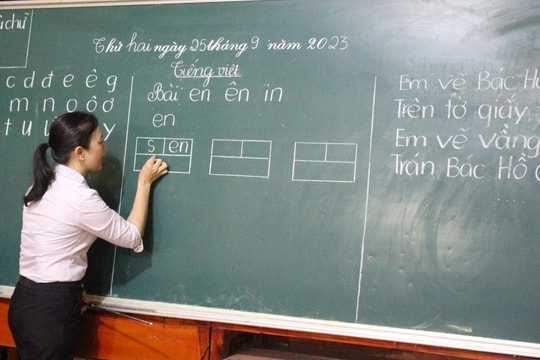 chữ
Thứ hai ngày 25 tháng 9 năm 2023
Tiếng việt
c d đ e ê g
m n o ô ơ
t u y
Bài en ên in
en
s en
Em vẽ Bác
Trên tờ giấy
Em vẽ vầng
Trán Bác Hồ